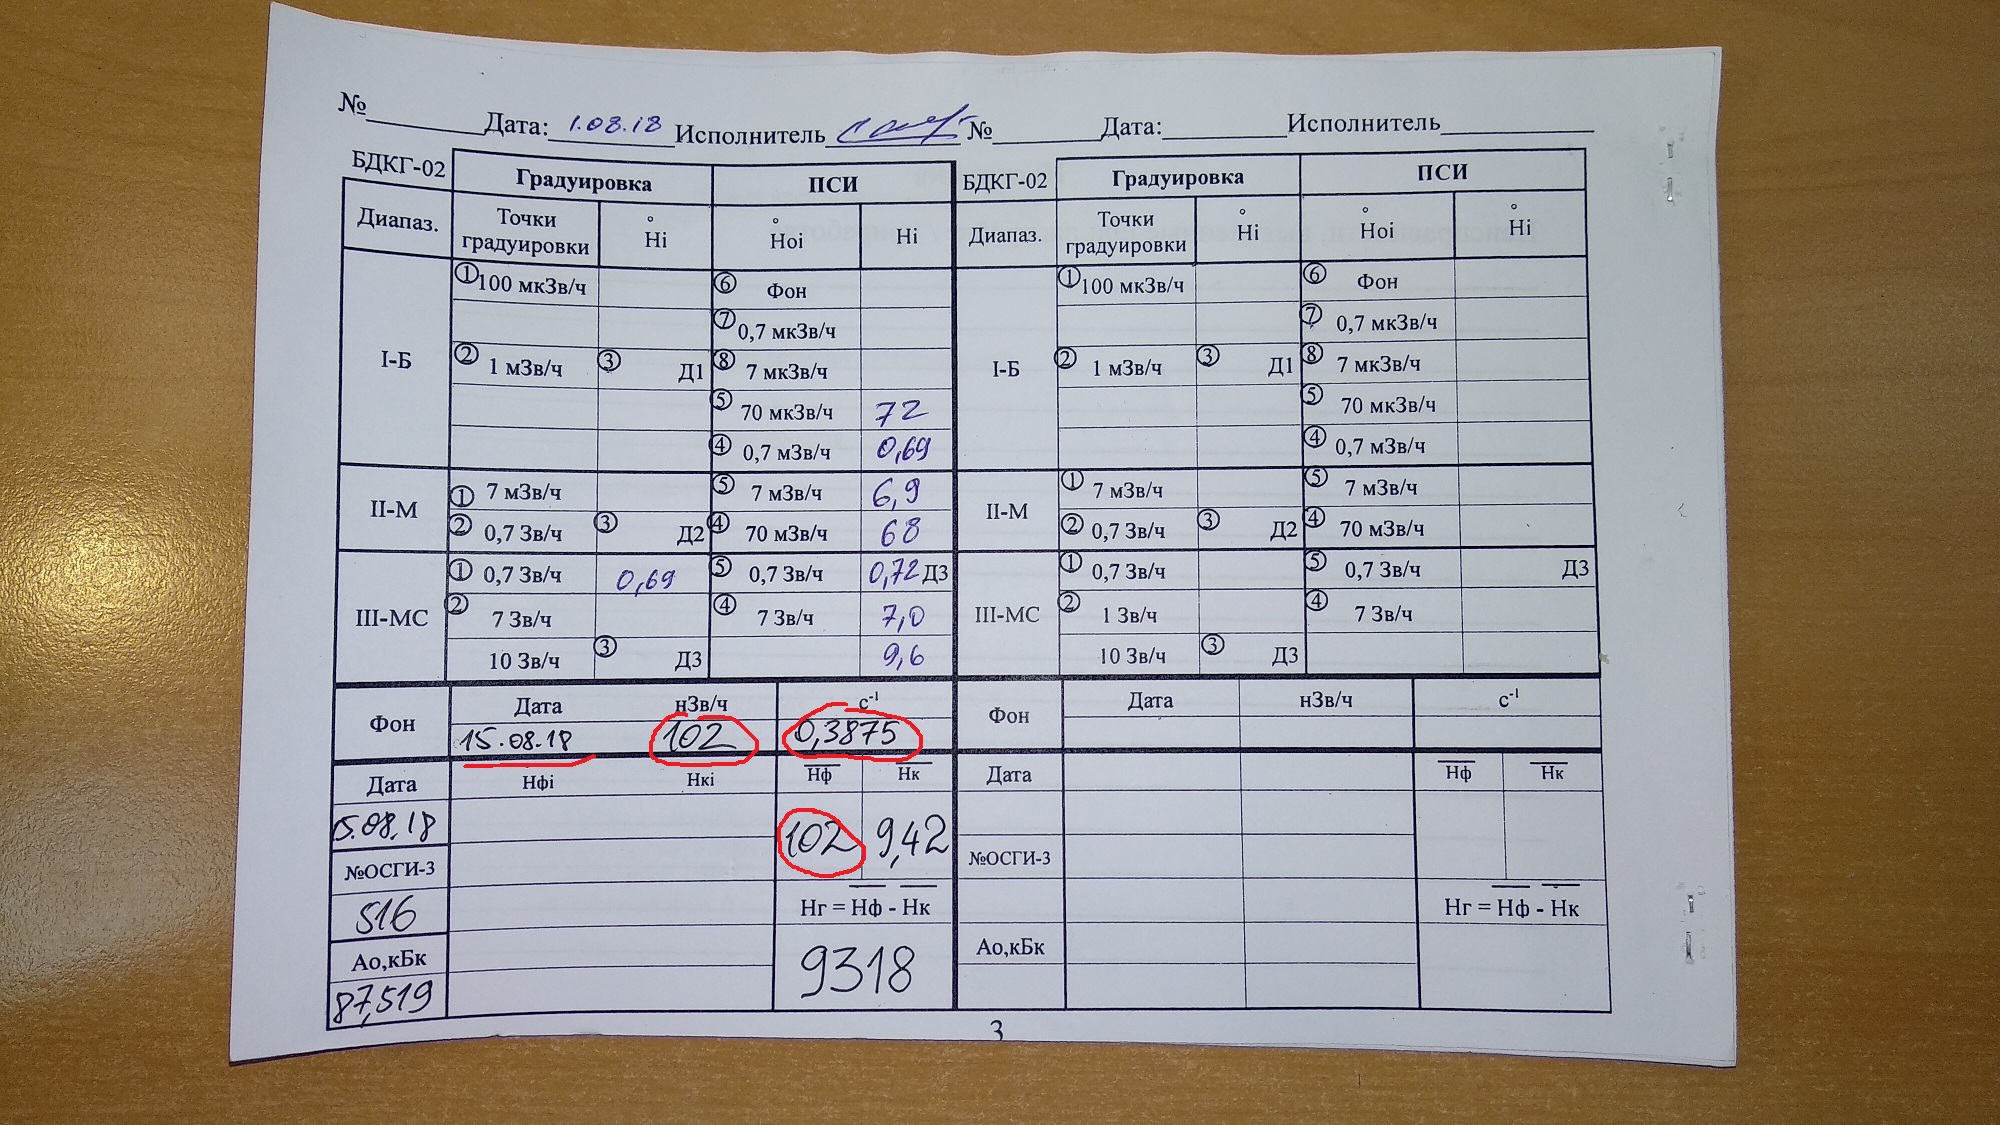 № Дата: 1.08.18 Исполнитель
БДКГ-02
Диапаз. Градуировка ПСИ
Точки градуировки Hi Hoi Hi
I-Б ① 100 мкЗв/ч ⑥ Фон
⑦ 0,7 мкЗв/ч
② 1 мЗв/ч ③ Д1 ⑧ 7 мкЗв/ч
⑤ 70 мкЗв/ч 72
④ 0,7 мЗв/ч 0,69
II-М ① 7 мЗв/ч ⑤ 7 мЗв/ч 6,9
② 0,7 Зв/ч ③ Д2 ④ 70 мЗв/ч 68
III-МС ① 0,7 Зв/ч 0,69 ⑤ 0,7 Зв/ч 0,72 Д3
② 7 Зв/ч ④ 7 Зв/ч 7,0
10 Зв/ч ③ Д3 9,6
Фон Дата нЗв/ч с-1
15.08.18 102 0,3875
Дата Нфi Нкi Нф Нк
15.08.18 102 9,42
№ОСГИ-3
516 Нг = Нф - Нк
Ао,кБк 9318
87,519
№ Дата: Исполнитель
БДКГ-02
Диапаз. Градуировка ПСИ
Точки градуировки Hi Hoi Hi
I-Б ① 100 мкЗв/ч ⑥ Фон
⑦ 0,7 мкЗв/ч
② 1 мЗв/ч ③ Д1 ⑧ 7 мкЗв/ч
⑤ 70 мкЗв/ч
④ 0,7 мЗв/ч
II-М ① 7 мЗв/ч ⑤ 7 мЗв/ч
② 0,7 Зв/ч ③ Д2 ④ 70 мЗв/ч
III-МС ① 0,7 Зв/ч ⑤ 0,7 Зв/ч Д3
② 1 Зв/ч ④ 7 Зв/ч
10 Зв/ч ③ Д3
Фон Дата нЗв/ч с-1
Дата Нф Нк
№ОСГИ-3
Нг = Нф - Нк
Ао,кБк
3